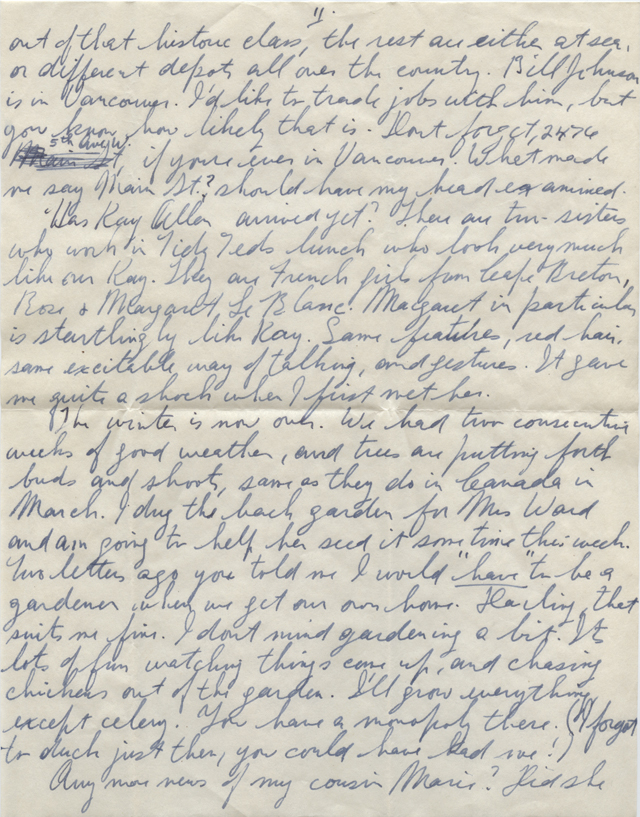 11.
out of that historic class, the rest are either at sea,
or different depots all over the country. Bill Johnson
is in Vancouver. I'd like to trade jobs with him, but
you know how likely that is. Dont forget, 2476
5th Ave W.
Main St, if youre ever in Vancouver. What made
me say Main St.? should have my head examined.
Has Kay Allan arrived yet? There are two sisters
who work in Tidy Teds lunch who look very much
like our Kay. They are French girls from Cape Breton,
Rose & Margaret Le Blanc. Margaret in particular
is startlingly like Kay. Same features, red hair,
same excitable way of talking, and gestures. It gave
me quite a shock when I first met her.
The winter is now over. We had two consecutive
weeks of good weather, and trees are putting forth
buds and shoots, same as they do in Canada in
March. I dug the back garden for Mrs Ward
and am going to help her seed it sometime this week.
Two letters ago you told me I would "have" to be a
gardener when we get our own home. Darling, that
suits me fine. I dont mind gardening a bit. It
lots of fun watching things come up, and chasing
chickens out of the garden. I'll grow everything
except celery. You have a monopoly there. (I forgot
to duck just then, you could have had me!)
Any more news of my cousin Marie? Did she